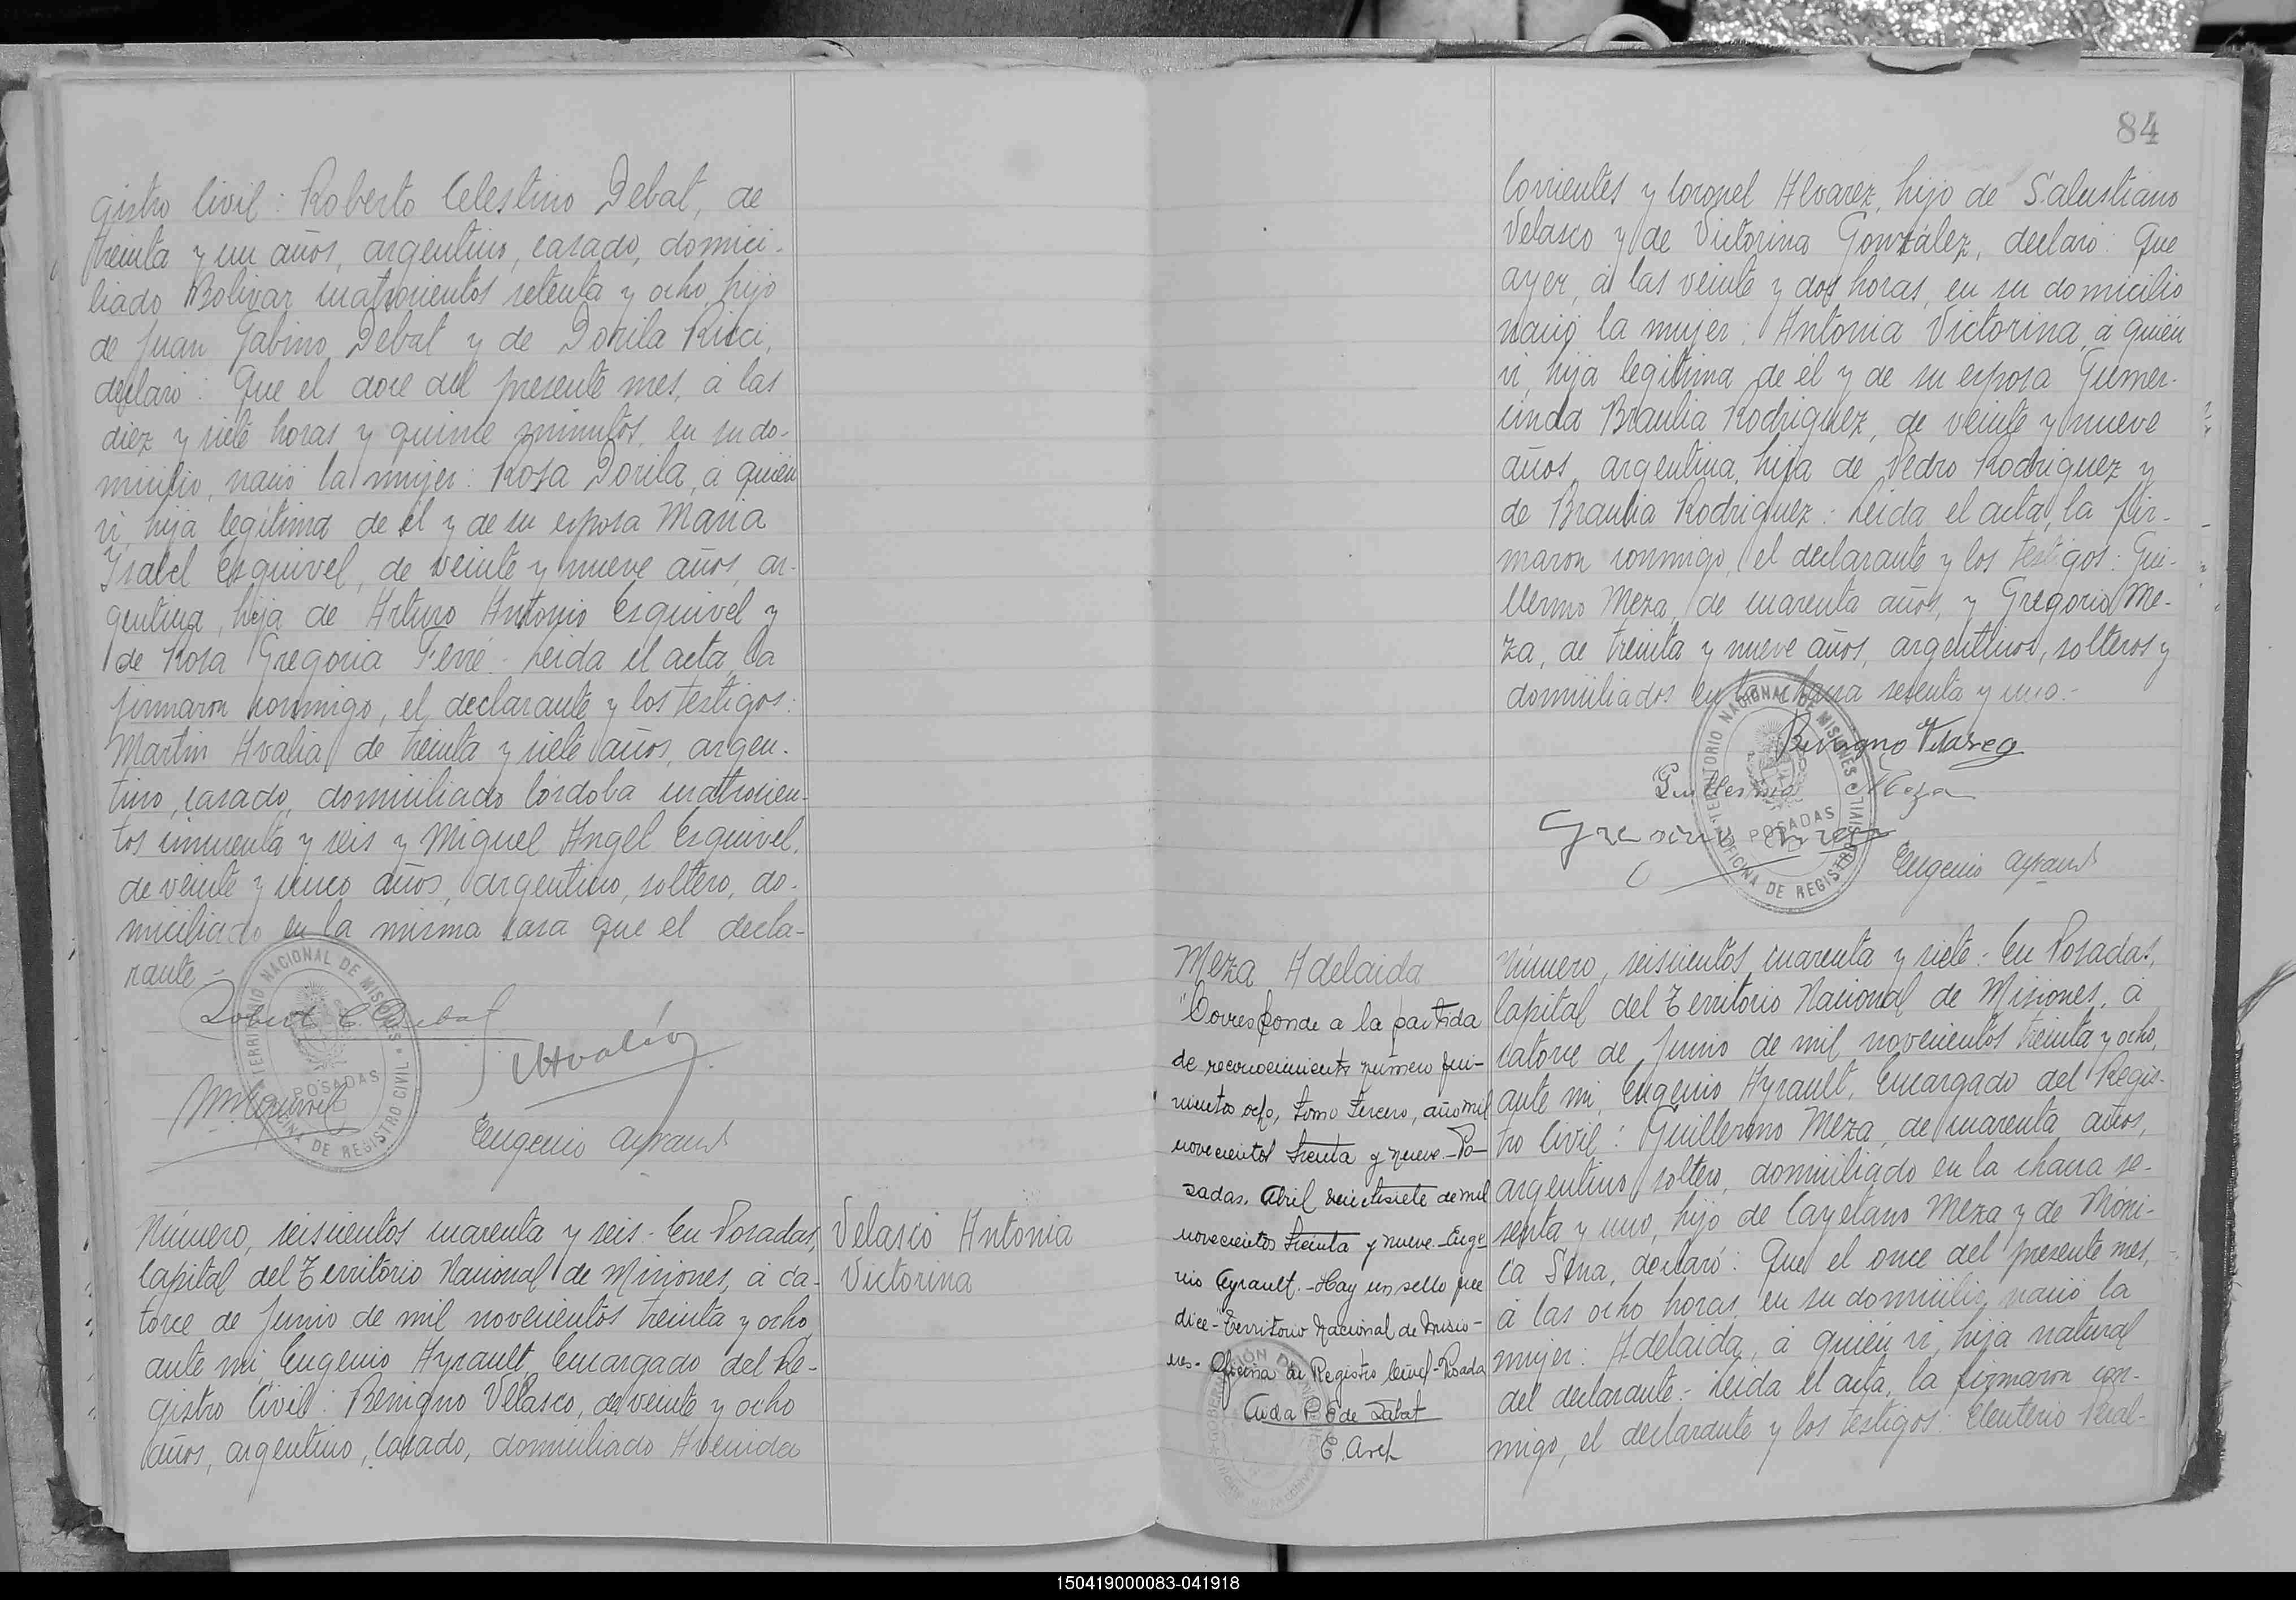 gistro Civil: Roberto Celestino Debat, de
treinta y un años, argentino, casado, domici-
liado Bolivar cuatrocientos setenta y ocho, hijo
de Juan Gabino Debat y de Dorila Ricci,
declaró: Que el doce del presente mes, á las
diez y siete horas y quince minutos, en su do-
micilio, nació la mujer: Rosa Dorila, á quién
vi, hija legitima de él y de su esposa Maria
Isabel Esquivel, de veinte y nueve años, ar-
gentina, hija de Arturo Antonio Esquivel y
de Rosa Gregoria Ferré.- Leida el acta, la
firmaron conmigo, el declarante y los testigos:
Martin Avalia de treinta y siete años, argen-
tino, casado, domiciliado Córdoba cuatrocien-
tos cincuenta y seis y Miguel Angel Esquivel,
de veinte y cinco años, argentino, soltero, do-
miciliado en la misma casa que el decla-
rante.-
Robert C. Debat
Avalia
M. Esquivel
Eugenio Ayrault
TERRITORIO NACIONAL DE MISIONES
POSADAS
OFICINA DE REGISTRO CIVIL
Número, seiscientos cuarenta y seis.- En Posadas,
Capital del Territorio Nacional de Misiones, á ca-
torce de Junio de mil novecientos treinta y ocho,
ante mi, Eugenio Ayrault, Encargado del Re-
gistro Civil: Benigno Velasco, de veinte y ocho
años, argentino, casado, domiciliado Avenida
Velasco Antonia
Victorina
84
Corrientes y Coronel Alvarez, hijo de Salustiano
Velasco y de Victorina González, declaró: Que
ayer, á las veinte y dos horas, en su domicilio
nació la mujer: Antonia Victorina, á quién
vi, hija legitima de él y de su esposa Gumer-
cinda Braulia Rodriguez, de veinte y nueve
años, argentina, hija de Pedro Rodriguez y
de Braulia Rodriguez.- Leida el acta, la fir-
maron conmigo, el declarante y los testigos: Gui-
llermo Meza, de cuarenta años, y Gregorio Me-
za, de treinta y nueve años, argentinos, solteros y
domiciliados en la chacra sesenta y uno.-
Benigno Velasco
Guillermo Meza
Gregorio Meza
Eugenio Ayrault
TERRITORIO NACIONAL DE MISIONES
POSADAS
OFICINA DE REGISTRO CIVIL
Meza Adelaida
"Corresponde a la partida
de reconocimiento número qui-
nientos ocho, tomo tercero, año mil
novecientos treinta y nueve.-Po-
sadas, Abril veintisiete de mil
novecientos treinta y nueve.-Euge
nio Ayrault.-Hay un sello que
dice-"Territorio Nacional de Misio-
nes- Oficina de Registro Civil-Posada
Aida P. E de Zabat
E. Aref
Número, seiscientos cuarenta y siete.- En Posadas,
Capital del Territorio Nacional de Misiones, á
catorce de Junio de mil novecientos treinta y ocho,
ante mi, Eugenio Ayrault, Encargado del Regis-
tro Civil: Guillermo Meza, de cuarenta años,
argentino, soltero, domiciliado en la chacra se-
senta y uno, hijo de Cayetano Meza y de Móni-
ca Sena, declaró: Que el once del presente mes,
á las ocho horas, en su domicilio, nació la
mujer: Adelaida, á quién vi, hija natural
del declarante.- Leida el acta, la firmaron con-
migo, el declarante y los testigos: Eleuterio Peral-
150419000083-041918